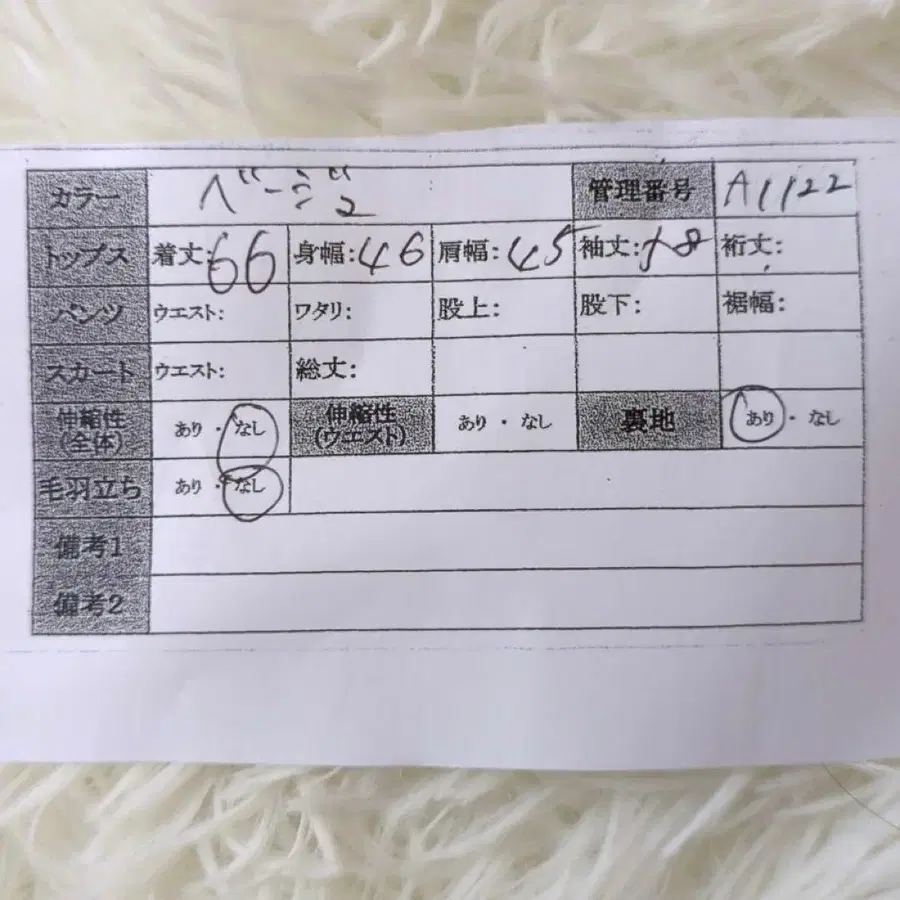 カラー ベージュ 管理番号 A1122
トップス 着丈:66 身幅:46 肩幅:45 袖丈:58 裄丈:
パンツ ウエスト: ワタリ: 股上: 股下: 裾幅:
スカート ウエスト: 総丈:
伸縮性(全体) あり・なし 伸縮性(ウエスト) あり・なし 裏地 あり・なし
毛羽立ち あり・なし
備考1
備考2